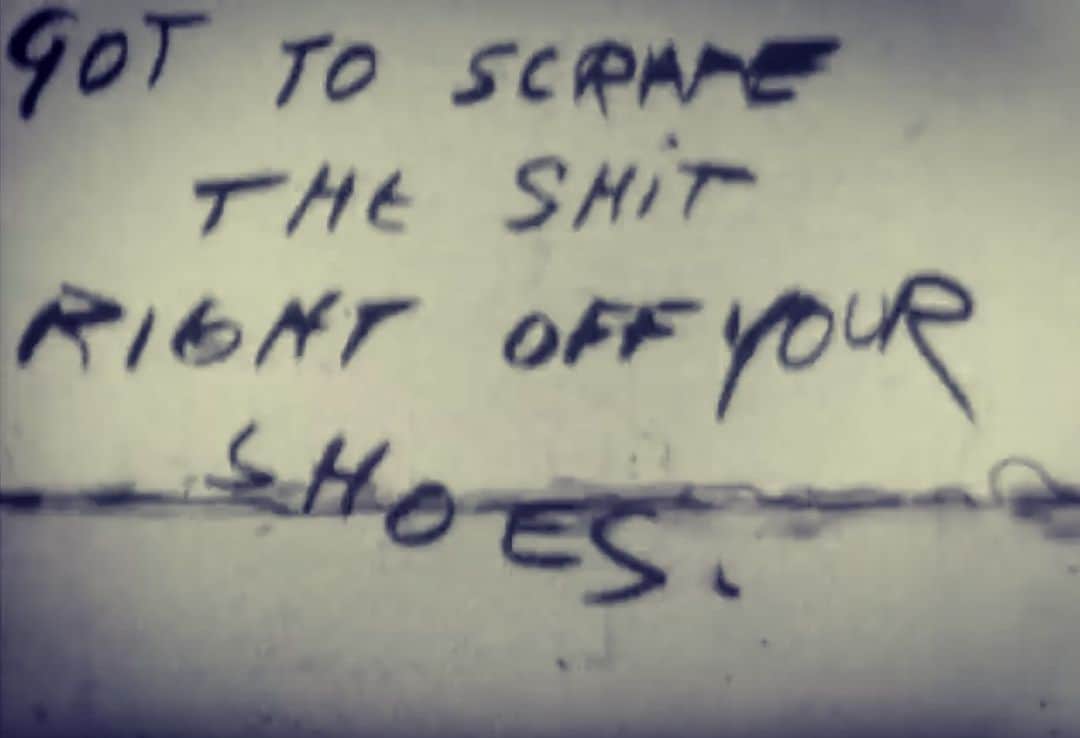 GOT TO SCRAPE
THE SHiT
RIGHT OFF YOUR
SHOES.